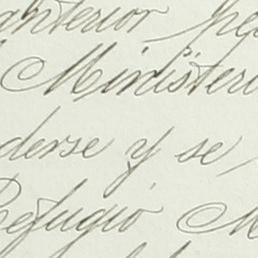 anterior
Ministeri
derse y se
Refugio M